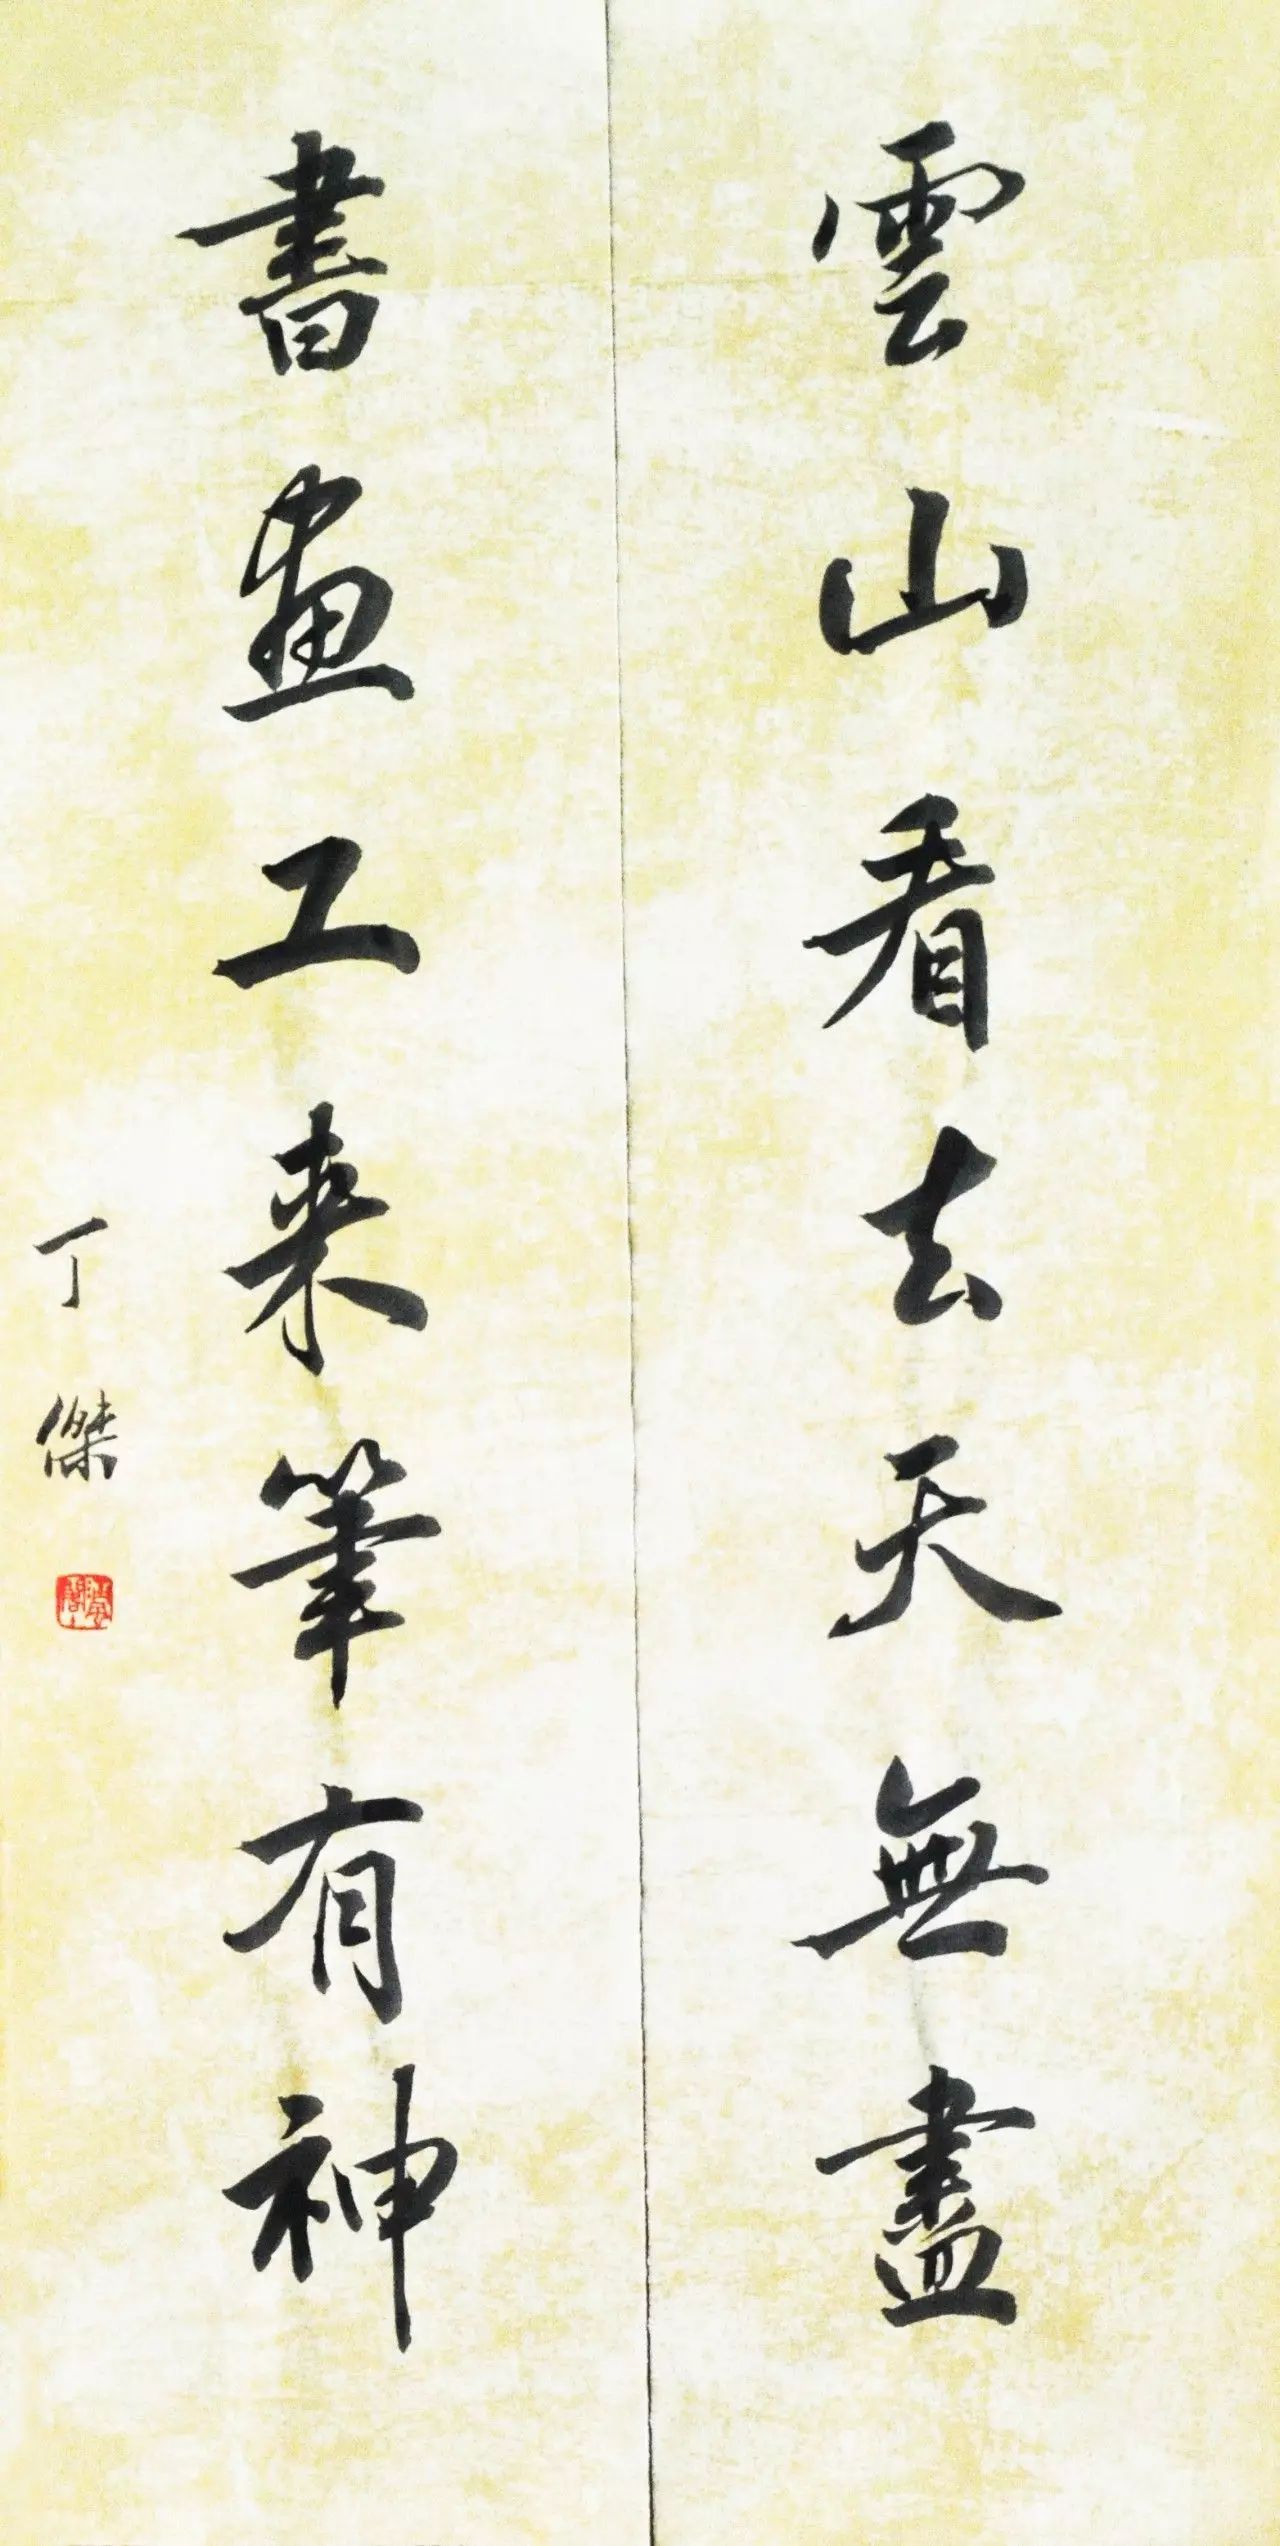 雲山看去天無盡
書畫工来筆有神
丁傑